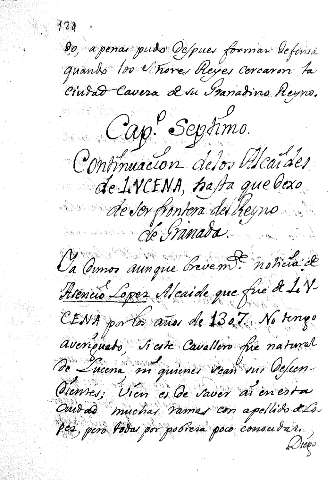 124
do, apenas pudo despues formar defensa
quando los Señores Reyes cercaron la
ciudad Cavera de su Granadino Reyno.
Cap.º Septimo.
Continuacion de los Alcaides
de LUCENA, hasta que dexo
de ser frontera del Reyno
de Granada.
Ya dimos aunque brevem.te noticia de
Asencio Lopez Alcaide que fue de LU-
CENA por los años de 1307. No tengo
averiguado, si este Cavallero fue natural
de Lucena ni quienes sean sus Descen-
dientes; bien es de saver ai en esta
Ciudad muchas ramas con apellido de Lo-
pez pero todas por pobreza poco conocidas.
Diego